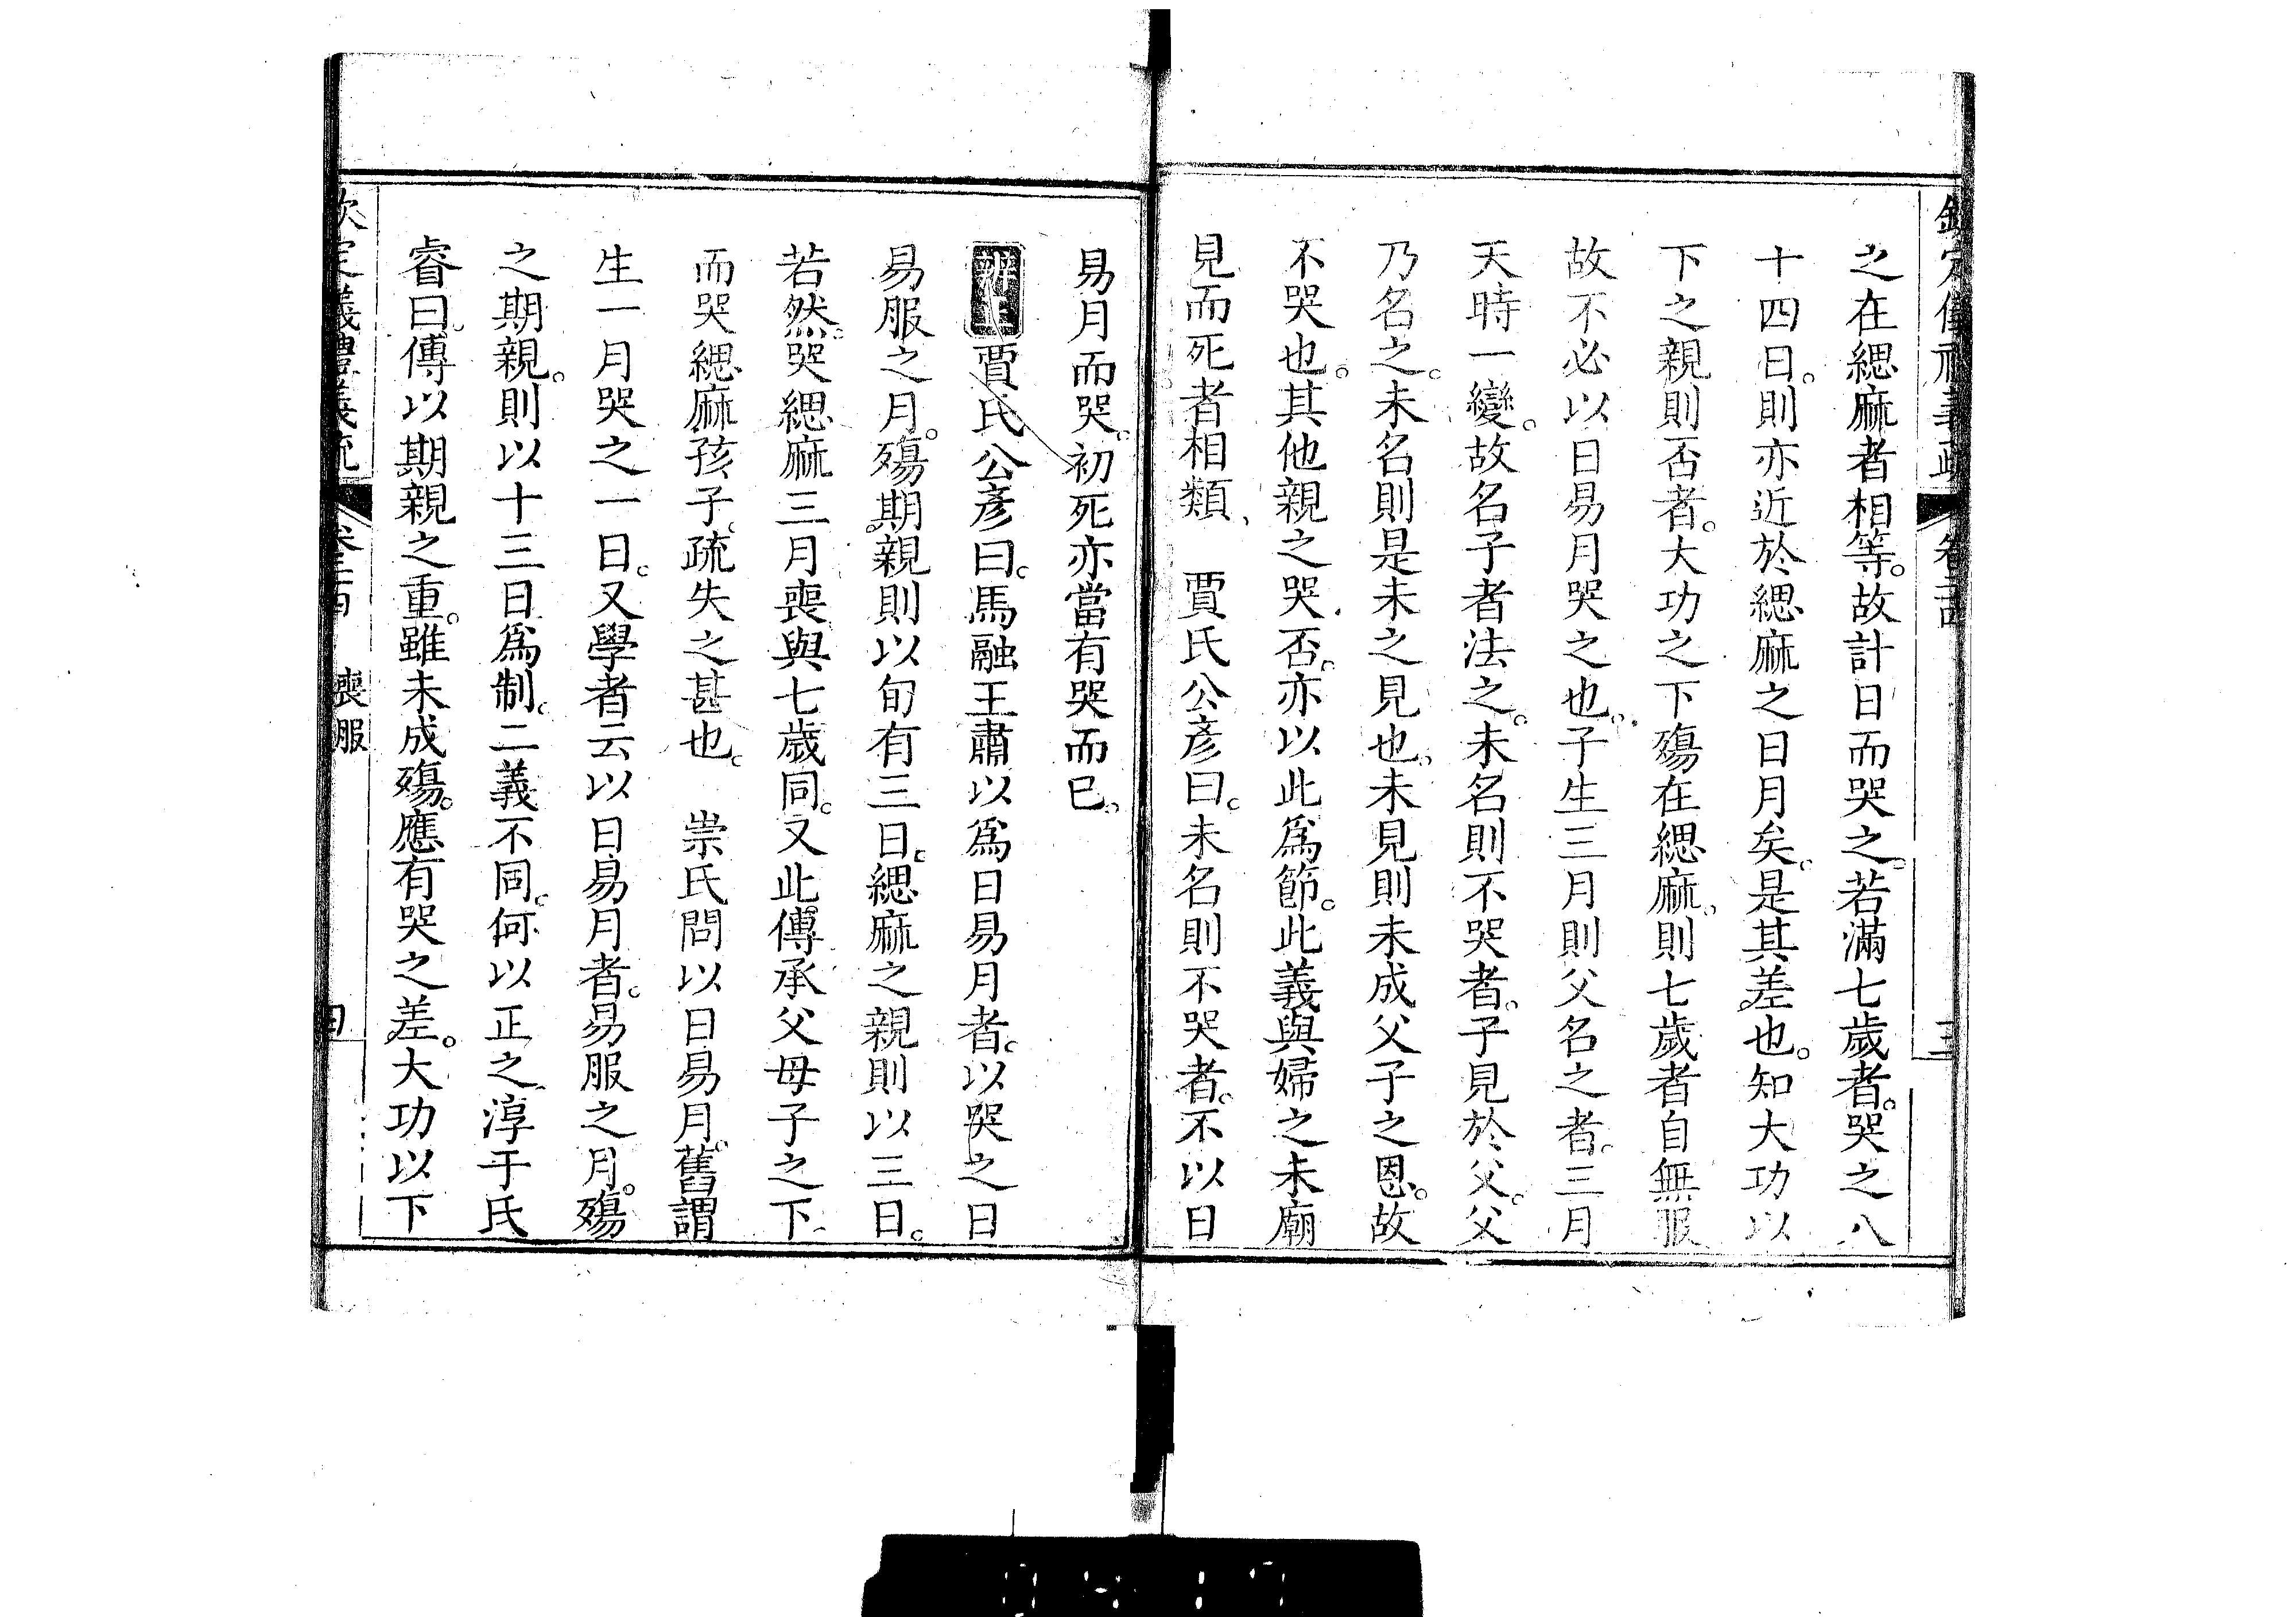 之在緦麻者相等。故計日而哭之。若滿七歲者。哭之八
十四日。則亦近於緦麻之日月矣。是其差也。知大功以
下之親則否者。大功之下殤在緦麻。則七歲者自無服
故不必以日易月哭之也。子生三月則父名之者。三月
天時一變。故名子者法之。未名則不哭者。子見於父。父
乃名之。未名則是未之見也。未見則未成父子之恩。故
不哭也。其他親之哭否。亦以此為節。此義與婦之未廟
見而死者相類 賈氏公彥曰。未名則不哭者。不以日
易月而哭。初死亦當有哭而已。
辨正賈氏公彥曰。馬融王肅以為日易月者。以哭之日
易服之月。殤期親則以旬有三日。緦麻之親則以三日。
若然。哭緦麻三月喪與七歲同。又此傳承父母子之下。
而哭緦麻孩子。疏失之甚也。 崇氏問以日易月。舊謂
生一月哭之一日。又學者云以日易月者。易服之月。殤
之期親。則以十三日爲制。二義不同。何以正之。淳于氏
睿曰。傳以期親之重。雖未成殤。應有哭之差。大功以下
喪服